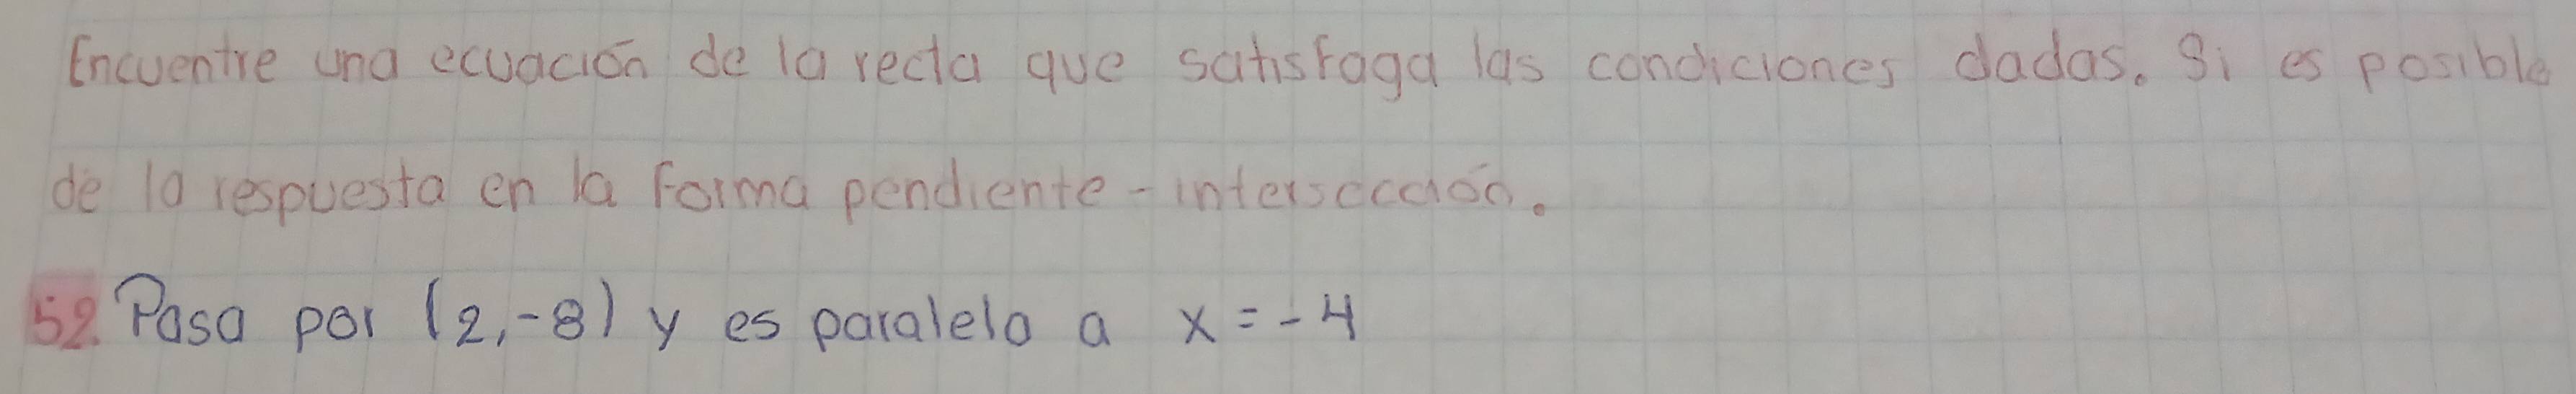 Encuentre una ecuación de la recta que satisfaga las condiciones dadas. Si es posible
de la respuesta en la forma pendiente-intersección.
52. Pasa por (2,-8) y es paralela a x = -4